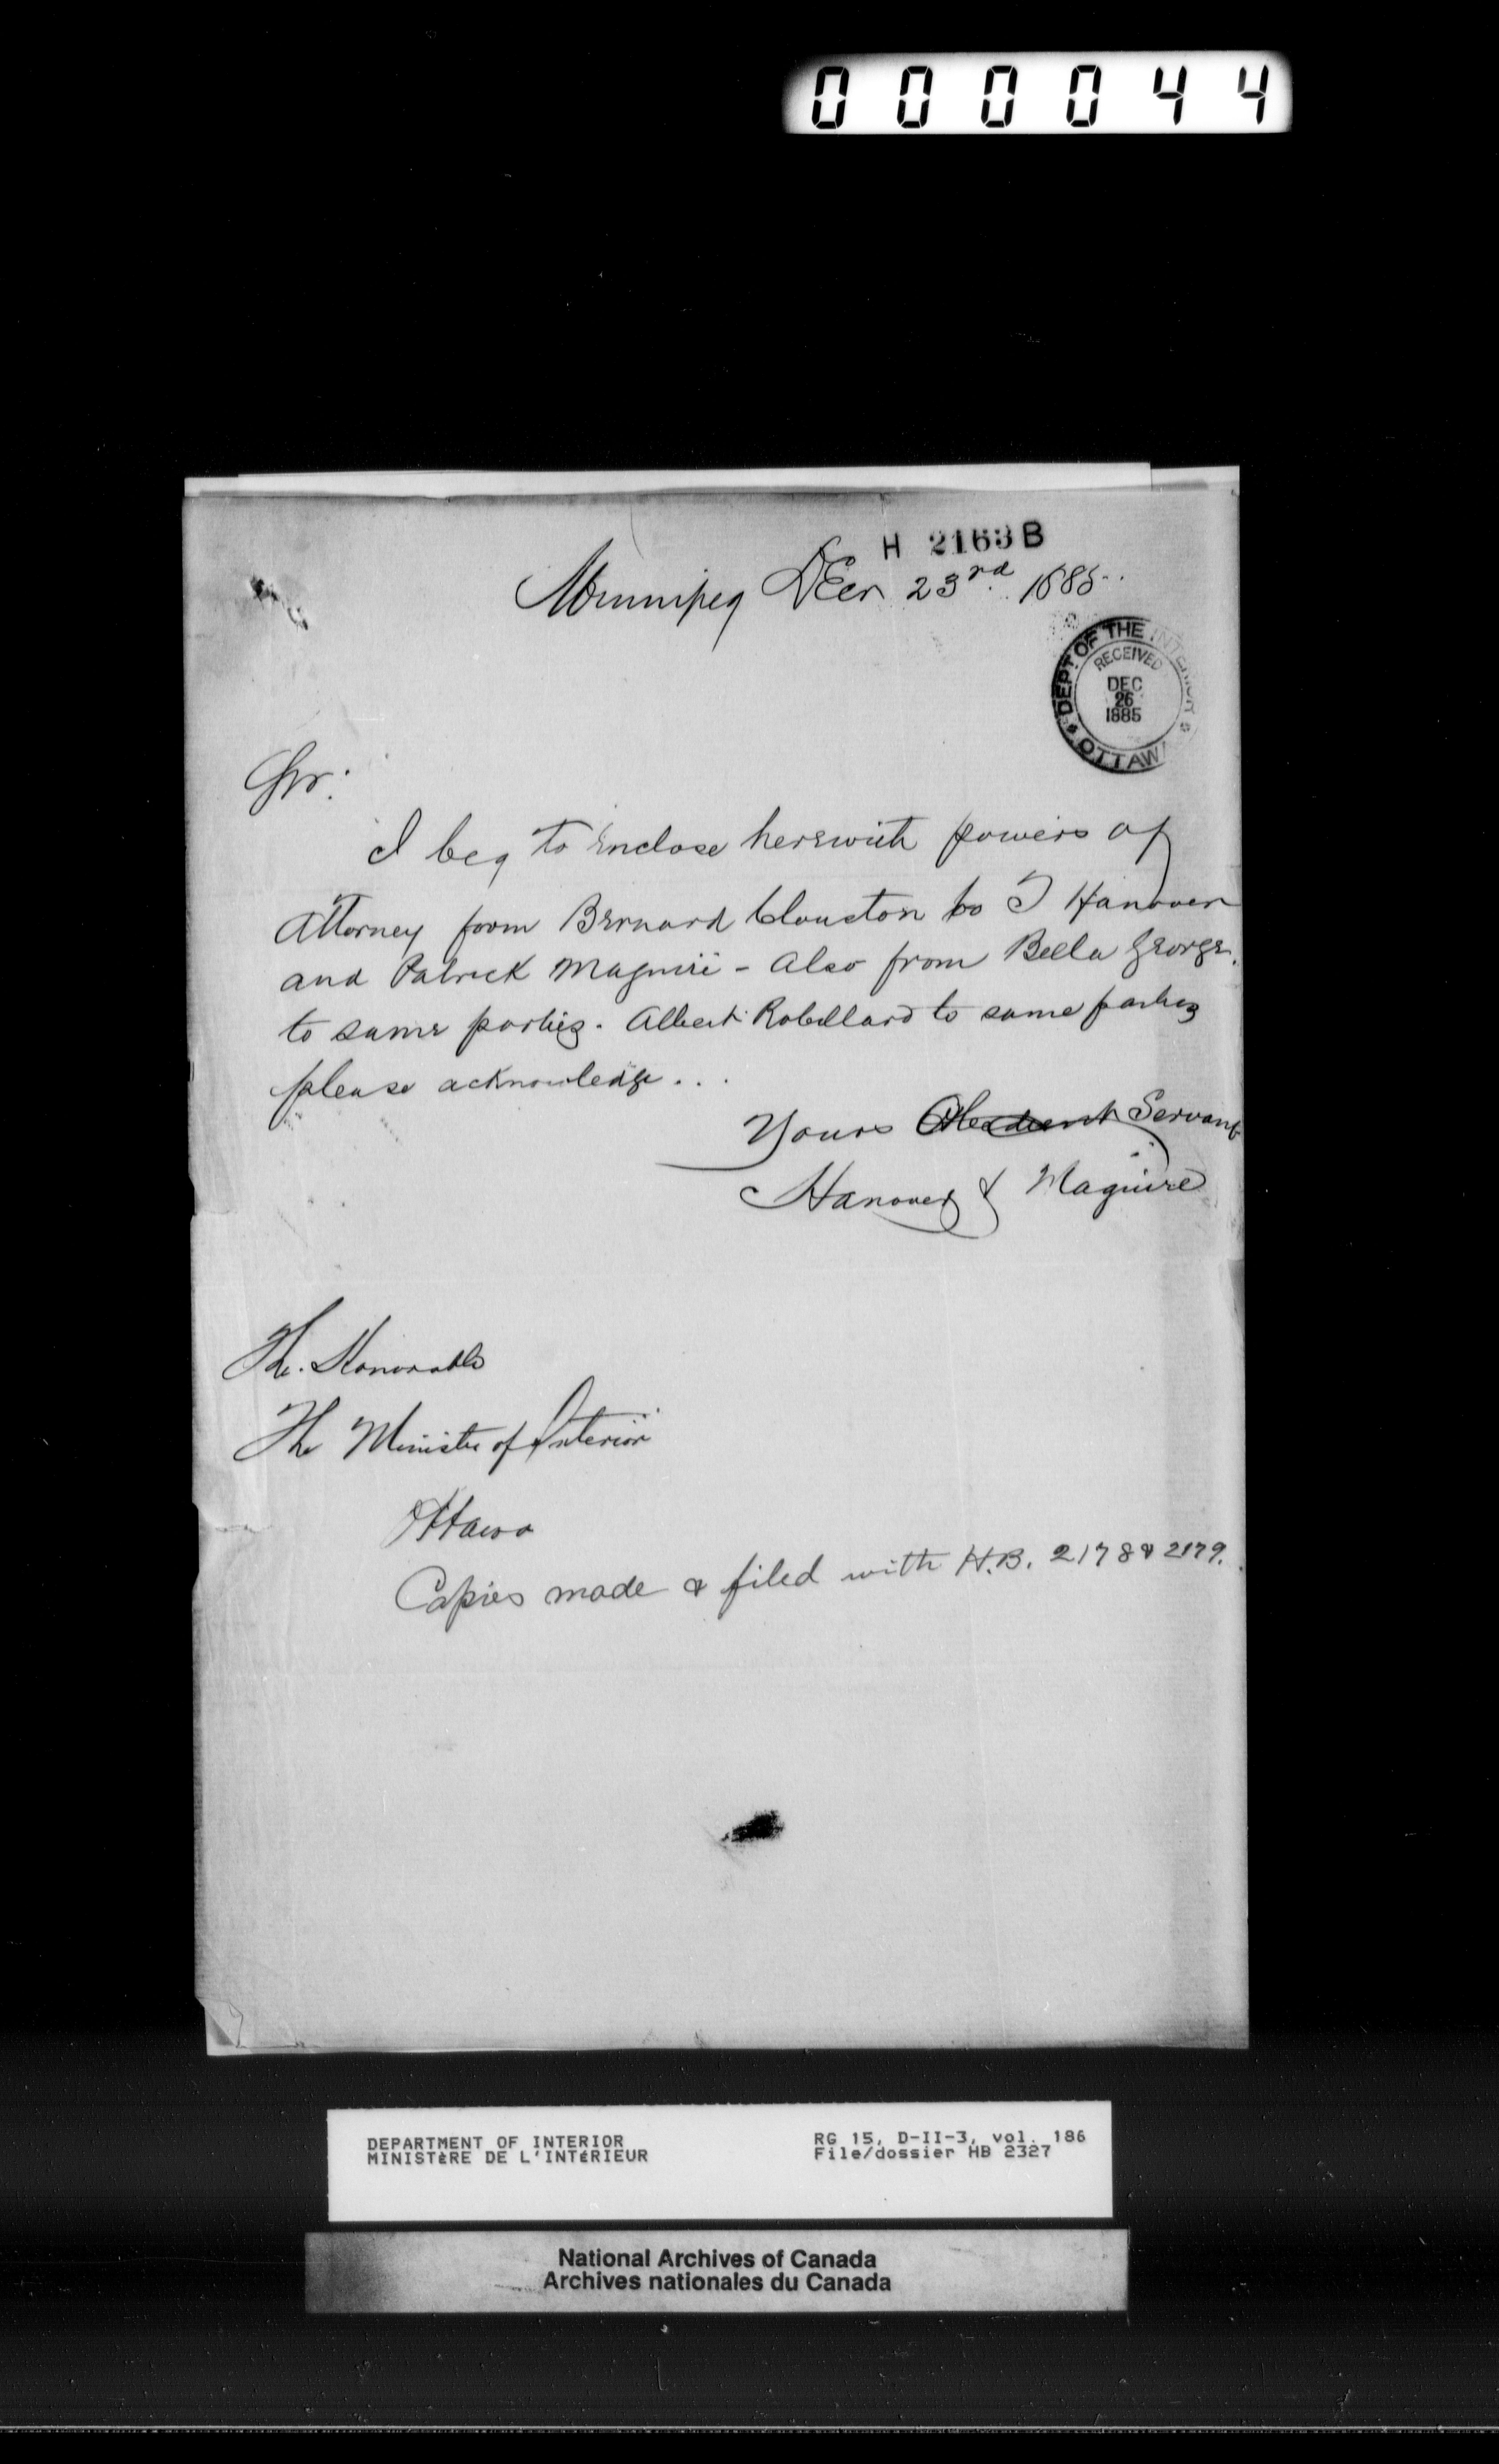 000044
H 2163 B
Winnipeg Dec 23rd 1885
DEPT OF THE INTERIOR
RECEIVED
DEC
26
1885
OTTAWA
Sir:
I beg to enclose herewith powers of
Attorney from Bernard Clouston to T Hanover
and Patrick Maguire - Also from Bella George
to same parties. Albert Robillard to same parties
please acknowledge...
Yours Obedient Servant
Hanover & Maguire
The Honorable
The Minister of Interior
Ottawa
Copies made & filed with H.B. 2178 & 2179.
DEPARTMENT OF INTERIOR
MINISTÈRE DE L'INTÉRIEUR
RG 15, D-II-3, vol. 186
File/dossier HB 2327
National Archives of Canada
Archives nationales du Canada